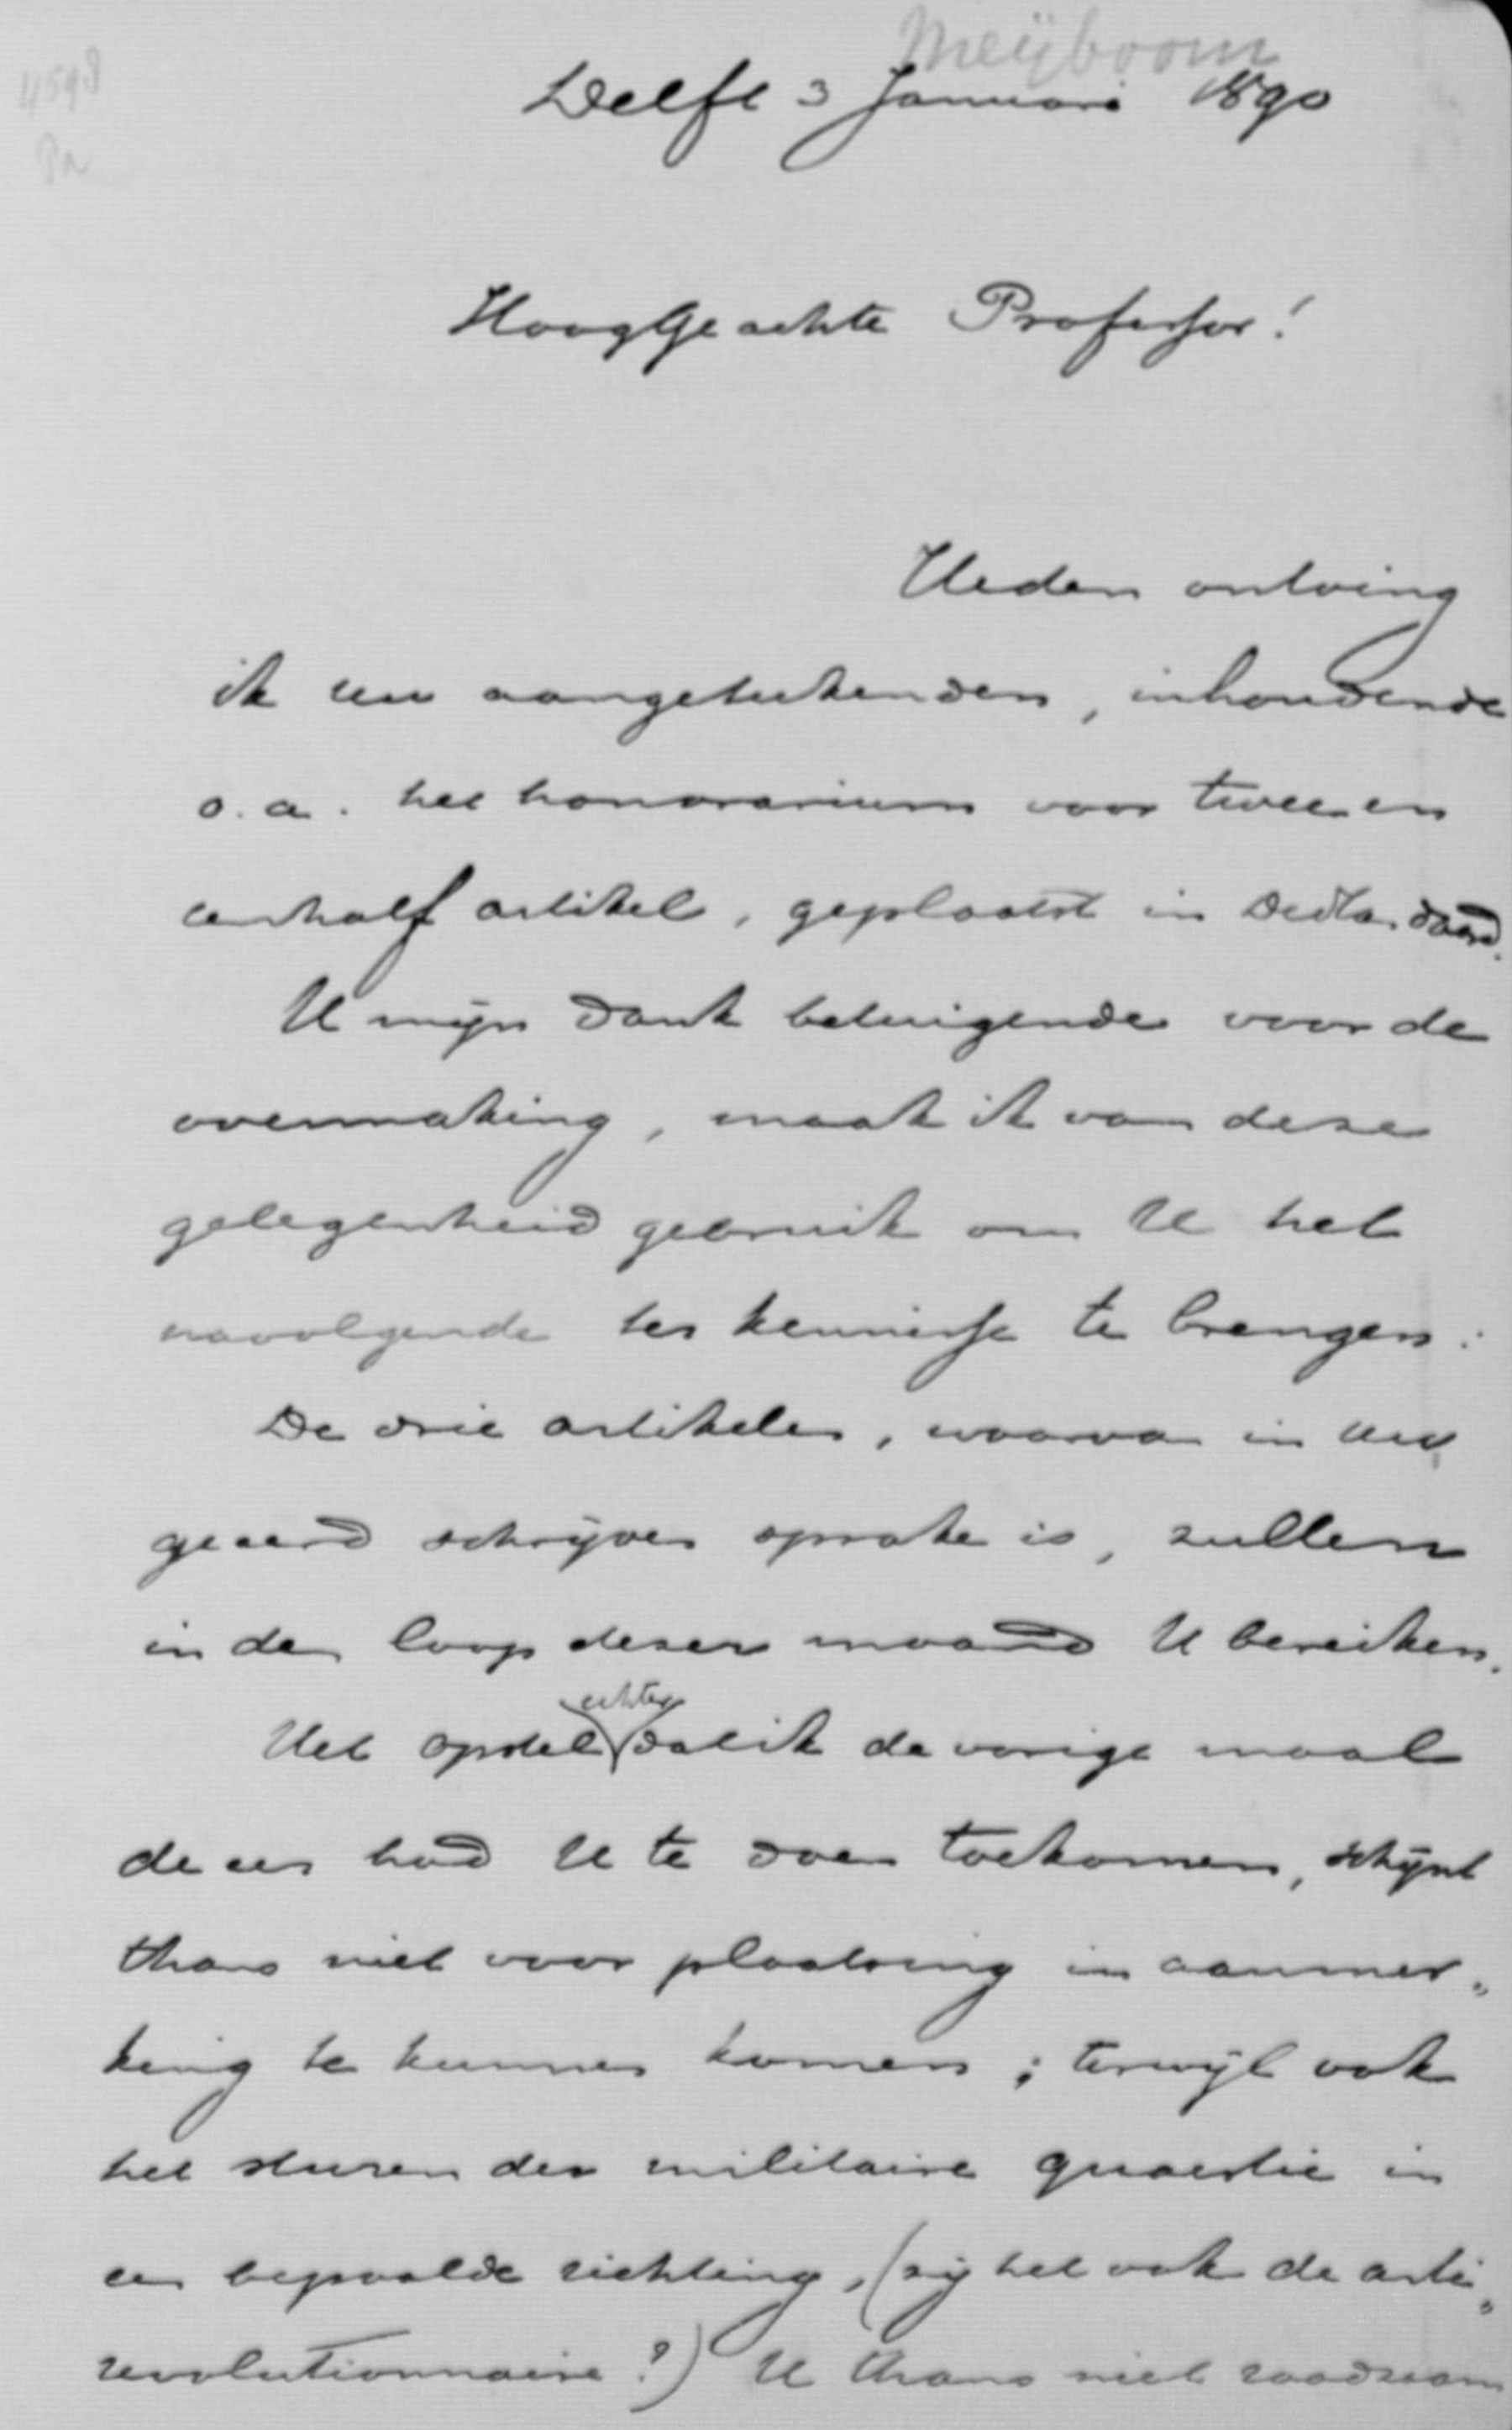 Meijboom
4598
Delft 3 Januari 1890
HoogGeachte Professor!
Heden ontving
ik uw aangeteekenden, inhoudende
o.a. het honorarium voor twee en
een half artikel, geplaatst in De Standaard.
U mijn dank betuigende voor de
overmaking, maak ik van deze
gelegenheid gebruik om U het
navolgende ter kennisse te brengen:
De drie artikelen, waarvan in uw
geëerd schrijven sprake is, zullen
in den loop dezer maand U bereiken.
Het opstel echter dat ik de vorige maal
de eer had U te doen toekomen, schijnt
thans niet voor plaatsing in aanmer„
king te kunnen komen; terwijl ook
het sturen der militaire quaestie in
een bepaalde richting, (zij het ook de anti„
revolutionnaire?) U thans niet raadzaam